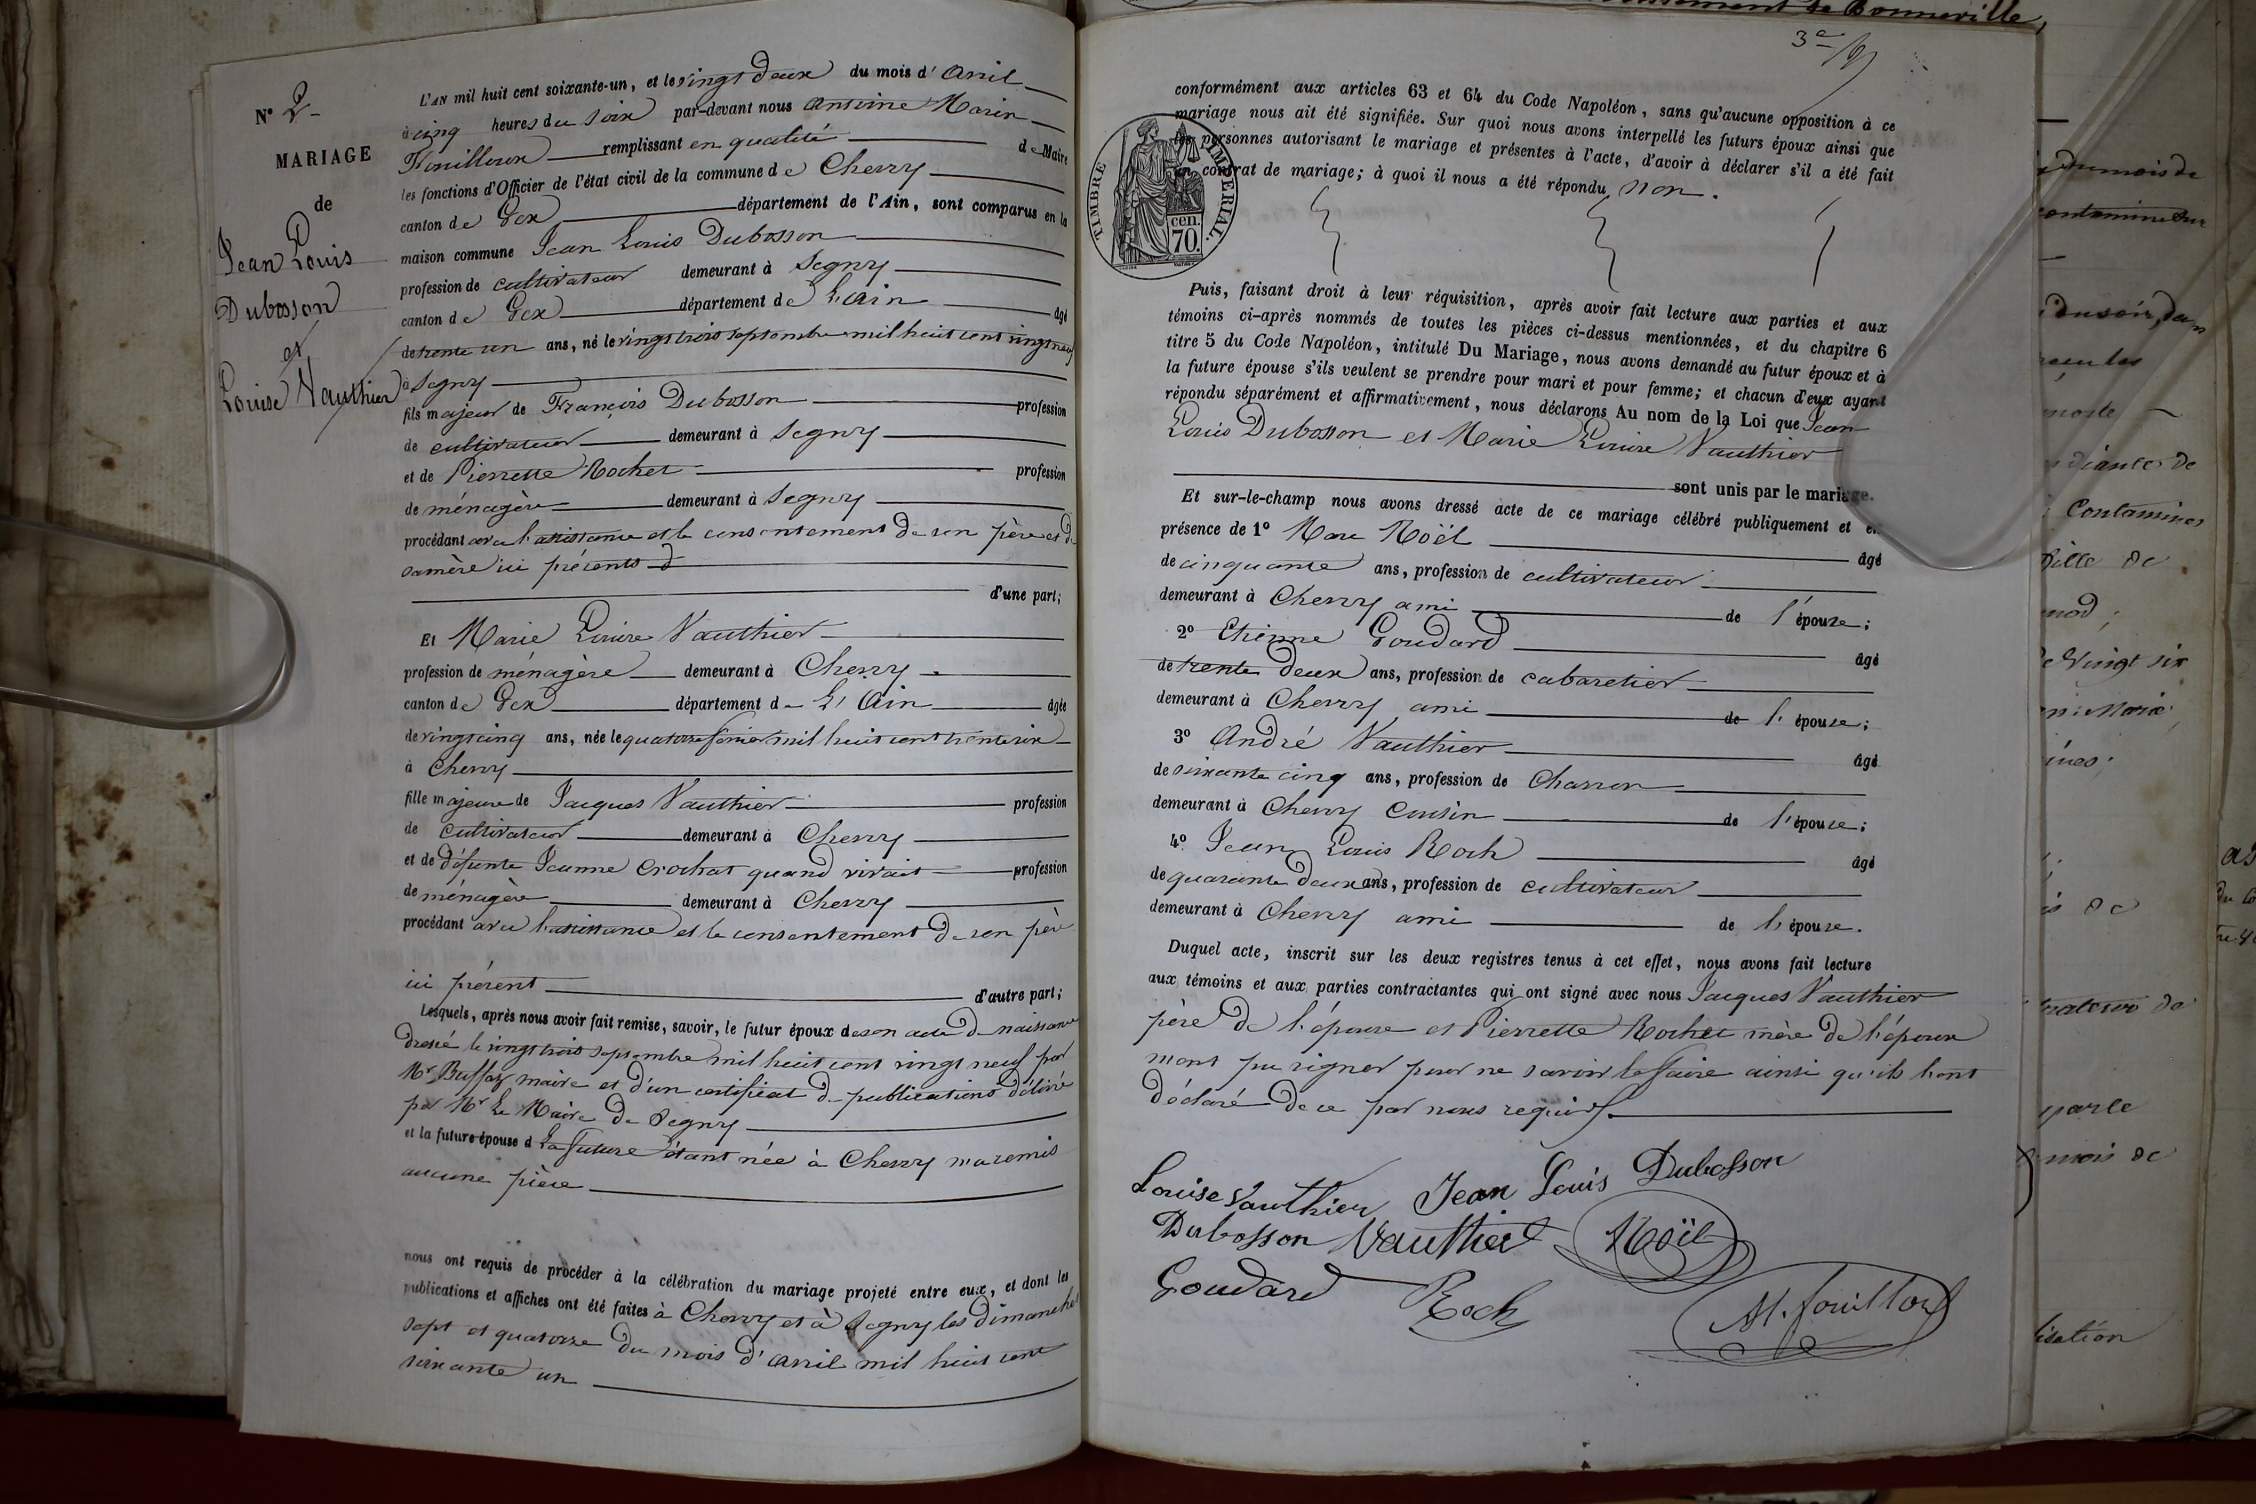 N° 2
MARIAGE
de
Jean Louis
Dubosson
et
Louise Vauthier
L'AN mil huit cent soixante-un, et le vingt deux du mois d'avril
à cinq heures du soir par-devant nous antoine Marin
Fouilloux remplissant en qualité de Maire
les fonctions d'Officier de l'état civil de la commune de Chevry
canton de Gex département de l'Ain, sont comparus en la
maison commune Jean Louis Dubosson
profession de cultivateur demeurant à Segny
canton de Gex département de L'ain âgé
de trente un ans, né le vingt trois septembre mil huit cent vingt neuf
à Segny
fils majeur de François Dubosson profession
de cultivateur demeurant à Segny
et de Pierrette Rochet profession
de ménagère demeurant à Segny
procédant avec l'assistance et le consentement de son père et de
sa mère ici présents d
d'une part;
Et Marie Louise Vauthier
profession de ménagère demeurant à Chevry
canton de Gex département de L'Ain âgée
de vingt cinq ans, née le quatorze février mil huit cent trente six
à Chevry
fille majeure de Jacques Vauthier profession
de cultivateur demeurant à Chevry
et de défunte Jeanne Crochat quand vivait profession
de ménagère demeurant à Chevry
procédant avec l'assistance et le consentement de son père
ici présent d'autre part;
Lesquels, après nous avoir fait remise, savoir, le futur époux de son acte de naissance
dressé le vingt trois septembre mil huit cent vingt neuf par
Mr Buffaz maire et d'un certificat de publications délivré
par Mr Le Maire de Segny
et la future épouse d La future étant née à Chevry n'a remis
aucune pièce
nous ont requis de procéder à la célébration du mariage projeté entre eux, et dont les
publications et affiches ont été faites à Chevry et à Segny les dimanches
sept et quatorze du mois d'avril mil huit cent
soixante un
conformément aux articles 63 et 64 du Code Napoléon, sans qu'aucune opposition à ce
mariage nous ait été signifiée. Sur quoi nous avons interpellé les futurs époux ainsi que
les personnes autorisant le mariage et présentes à l'acte, d'avoir à déclarer s'il a été fait
un contrat de mariage; à quoi il nous a été répondu non.
TIMBRE IMPERIAL.
cen.
70.
Puis, faisant droit à leur réquisition, après avoir fait lecture aux parties et aux
témoins ci-après nommés de toutes les pièces ci-dessus mentionnées, et du chapitre 6
titre 5 du Code Napoléon, intitulé Du Mariage, nous avons demandé au futur époux et à
la future épouse s'ils veulent se prendre pour mari et pour femme; et chacun d'eux ayant
répondu séparément et affirmativement, nous déclarons Au nom de la Loi que Jean
Louis Dubosson et Marie Louise Vauthier
sont unis par le mariage.
Et sur-le-champ nous avons dressé acte de ce mariage célébré publiquement et en
présence de 1° Marc Noël âgé
de cinquante ans, profession de cultivateur
demeurant à Chevry ami de l'épouse;
2° Etienne Goudard âgé
de trente deux ans, profession de cabaretier
demeurant à Chevry ami de l'épouse;
3° André Vauthier âgé
de soixante cinq ans, profession de Charron
demeurant à Chevry Cousin de l'épouse;
4° Jean Louis Roch âgé
de quarante deux ans, profession de cultivateur
demeurant à Chevry ami de l'épouse.
Duquel acte, inscrit sur les deux registres tenus à cet effet, nous avons fait lecture
aux témoins et aux parties contractantes qui ont signé avec nous Jacques Vauthier
père de l'épouse et Pierrette Rochet mère de l'époux
n'ont pu signer pour ne savoir le faire ainsi qu'ils l'ont
déclaré de ce par nous requis
Louise Vauthier Jean Louis Dubosson
Dubosson Vauthier Noël
Goudard Roch M. fouilloux
de Bonneville,
du mois de
Contamines
mois de